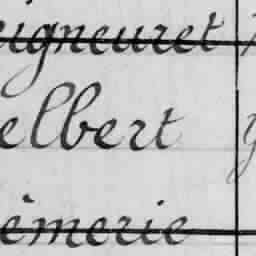 eigneuret
elbert
émerie